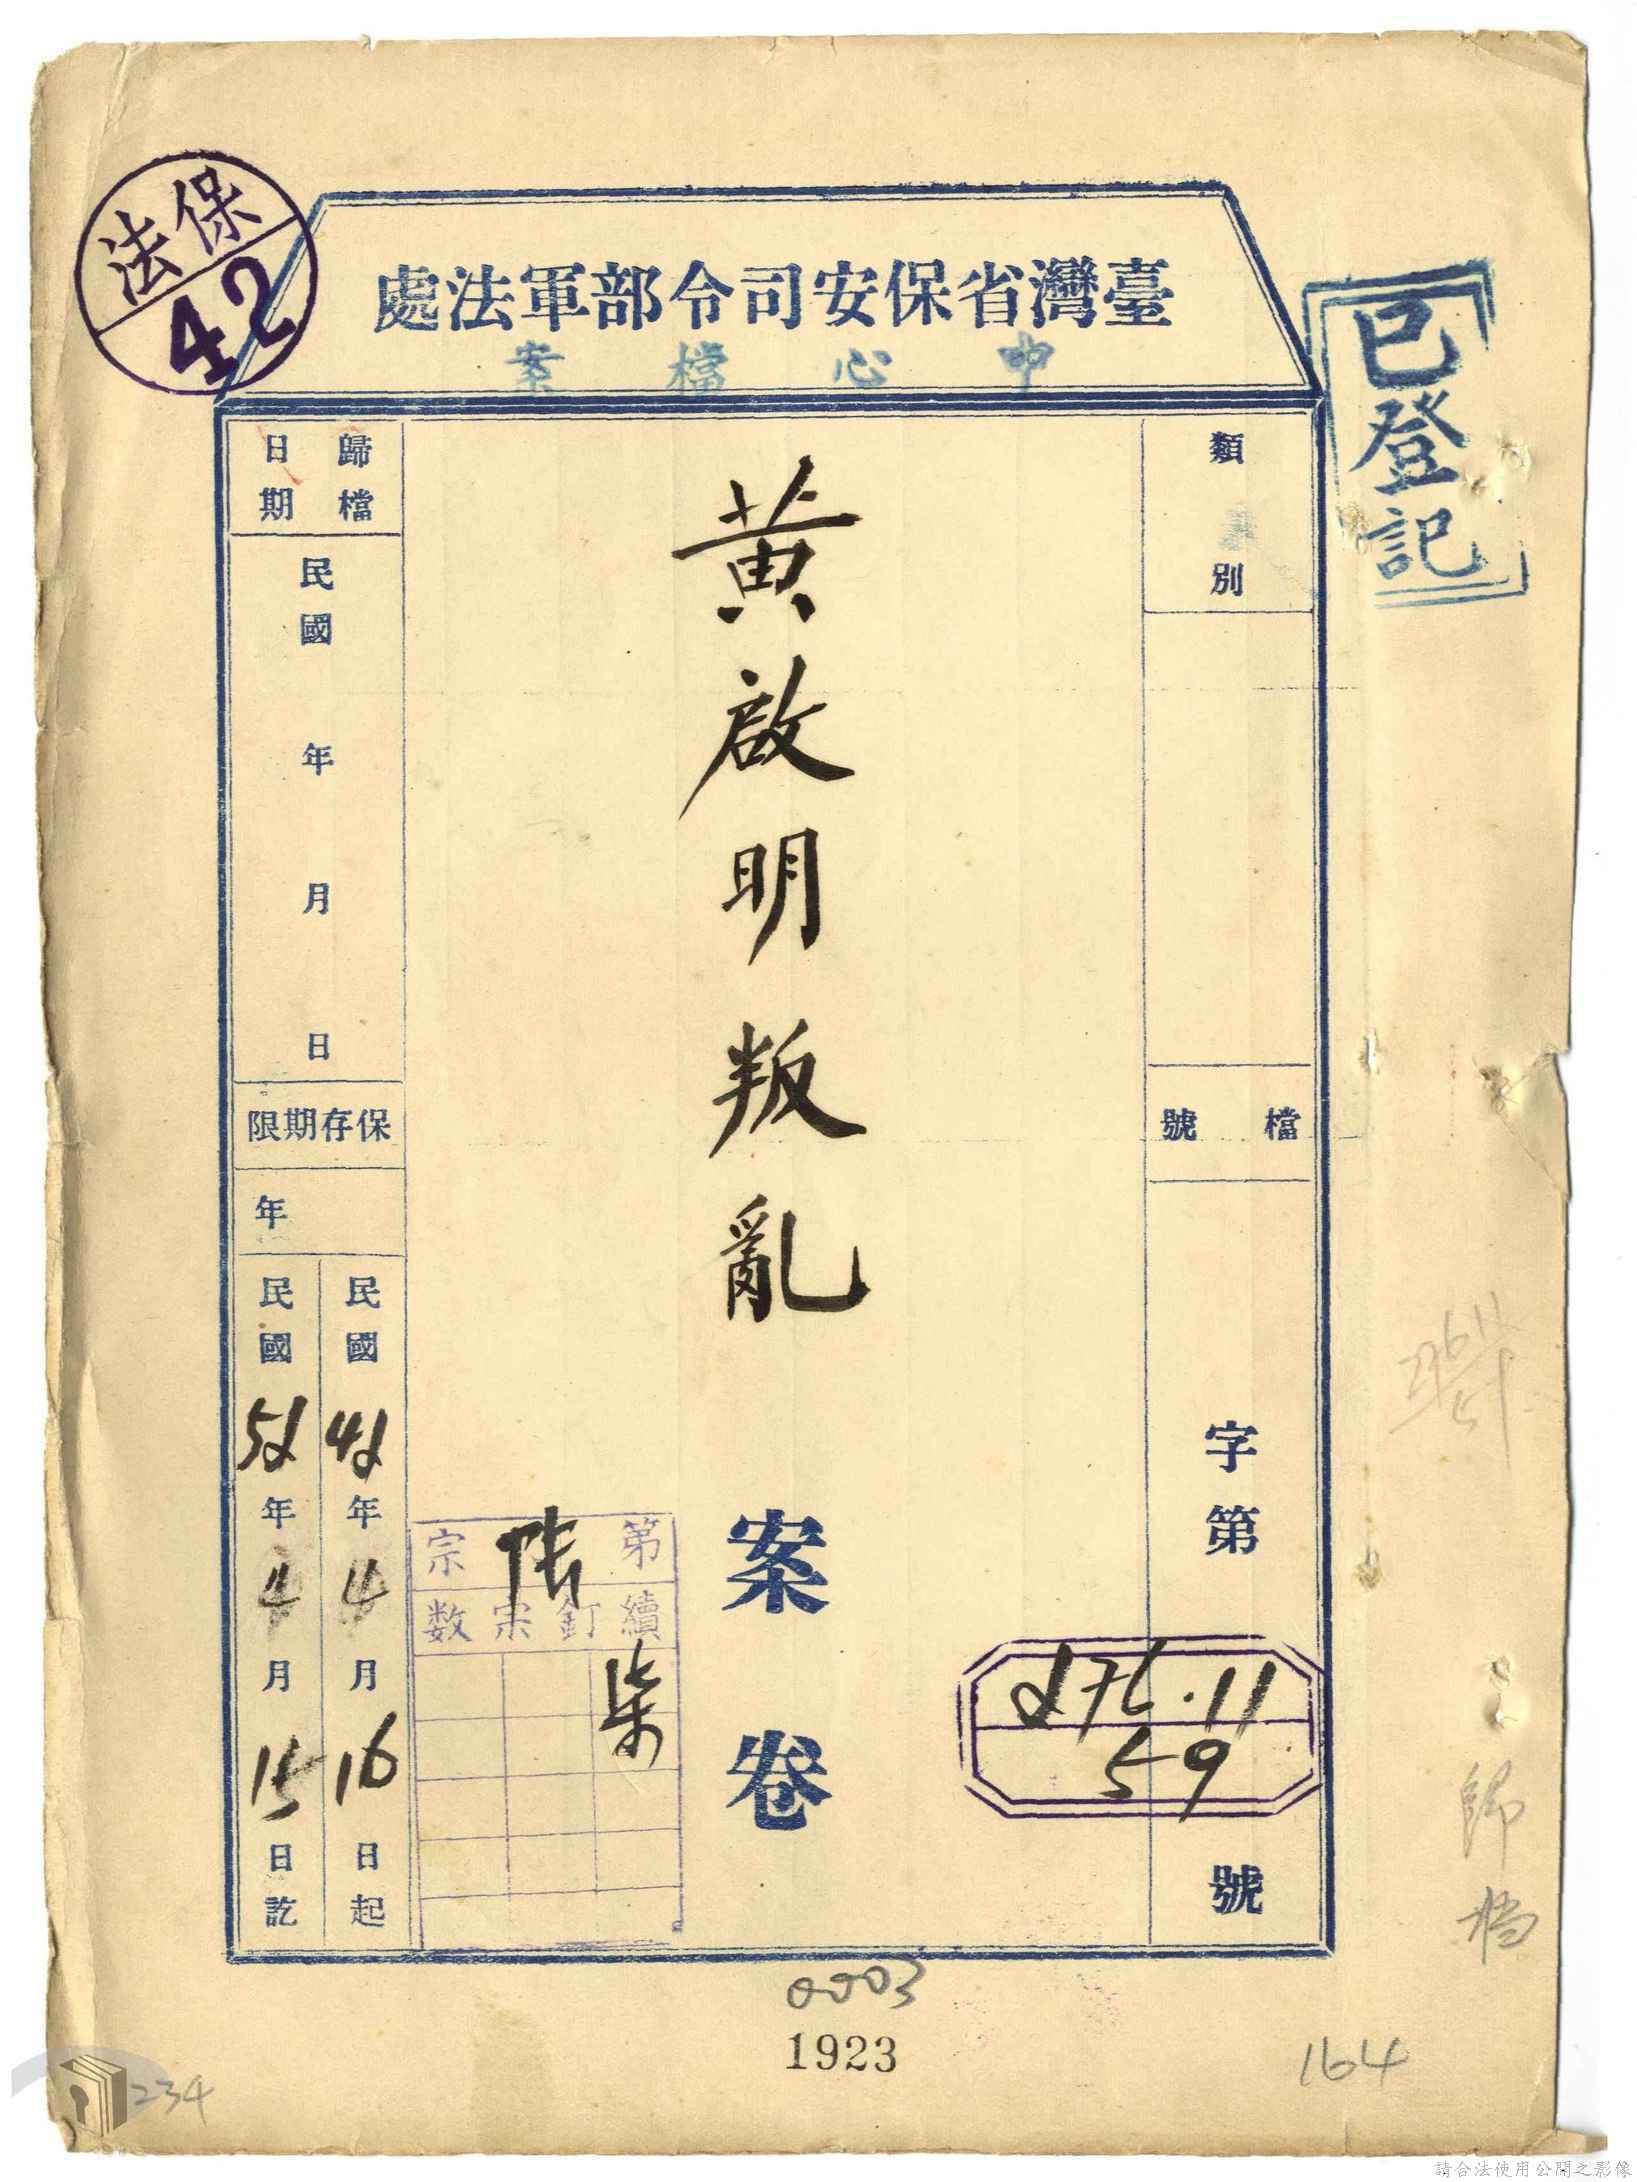 保法
42
處法軍部令司安保省灣臺
案檔心中
已登記
類別
檔號
字第
276.11
59
號
黃啟明叛亂
案卷
第陸宗
續釘宗数
柒
歸檔日期
民國 年 月 日
限期存保
年
民國42年4月16日起
民國52年4月15日訖
歸檔
0003
1923
164
234
請合法使用公開之影像